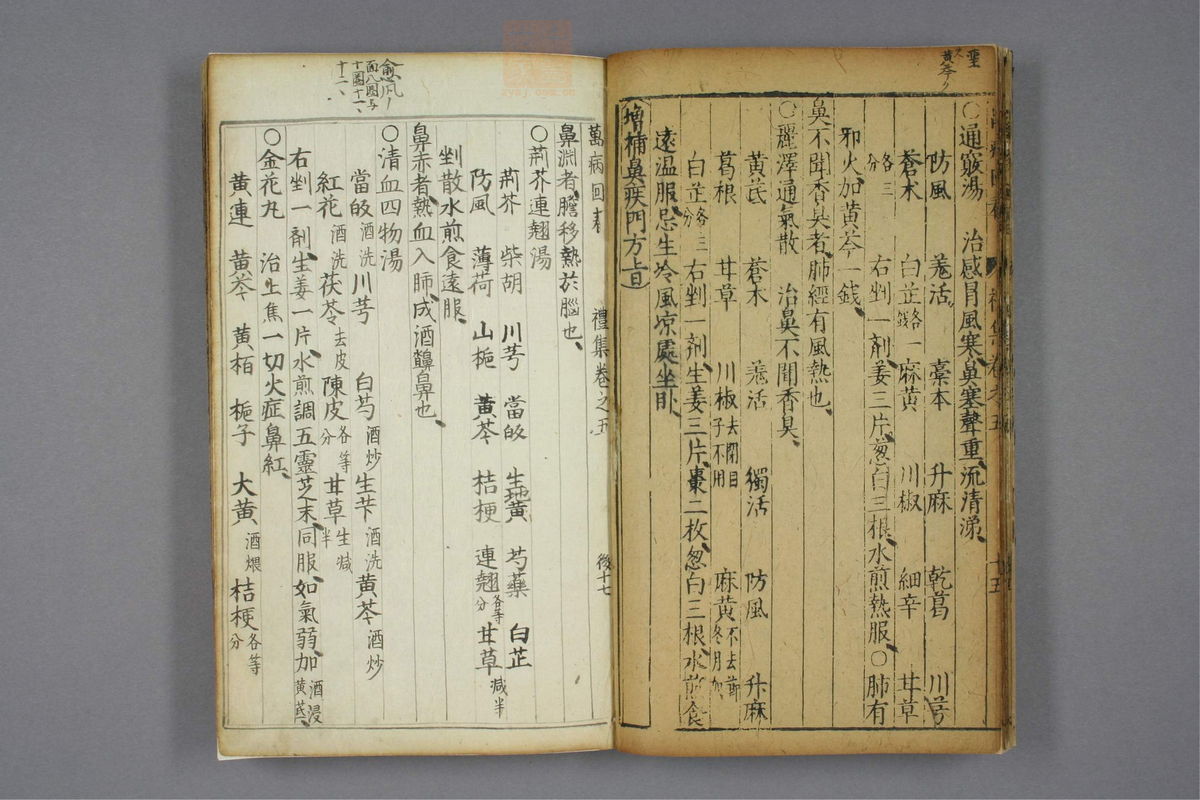 ○通竅湯　治感冒風寒鼻塞聲重流清涕
防風　羌活　藁本　升麻　乾葛　川芎
蒼朮　白芷各一錢　麻黄　川椒　細辛　甘草
各三分　右剉一劑姜三片葱白三根水煎熱服○肺有
邪火加黄芩一錢
鼻不聞香臭者肺經有風熱也
○麗澤通氣散　治鼻不聞香臭
黄芪　蒼朮　羌活　獨活　防風　升麻
葛根　甘草　川椒去閉目子不用　麻黄不去節冬月加
白芷各三分　右剉一剤生姜三片棗二枚葱白三根水煎食
遠温服忌生冷風凉處坐卧
増補鼻疾門方上旨
萬病回春　禮集卷之五　後十七
鼻淵者膽移熱於腦也
○荊芥連翹湯
荊芥　柴胡　川芎　當皈　生地黄　芍藥　白芷
防風　薄荷　山梔　黄芩　桔梗　連翹各等分　甘草減半
剉散水煎食遠服
鼻赤者熱血入肺成酒齄鼻也
○清血四物湯
當皈酒洗　川芎　白芍酒炒　生苄酒洗　黄芩酒炒
紅花酒洗　茯苓去皮　陳皮各等分　甘草生減半
右剉一剤生姜一片水煎調五靈芝末同服如氣弱加酒浸黄芪
○金花丸　治上焦一切火症鼻紅
黄連　黄芩　黄栢　梔子　大黄酒煨　桔梗各等分